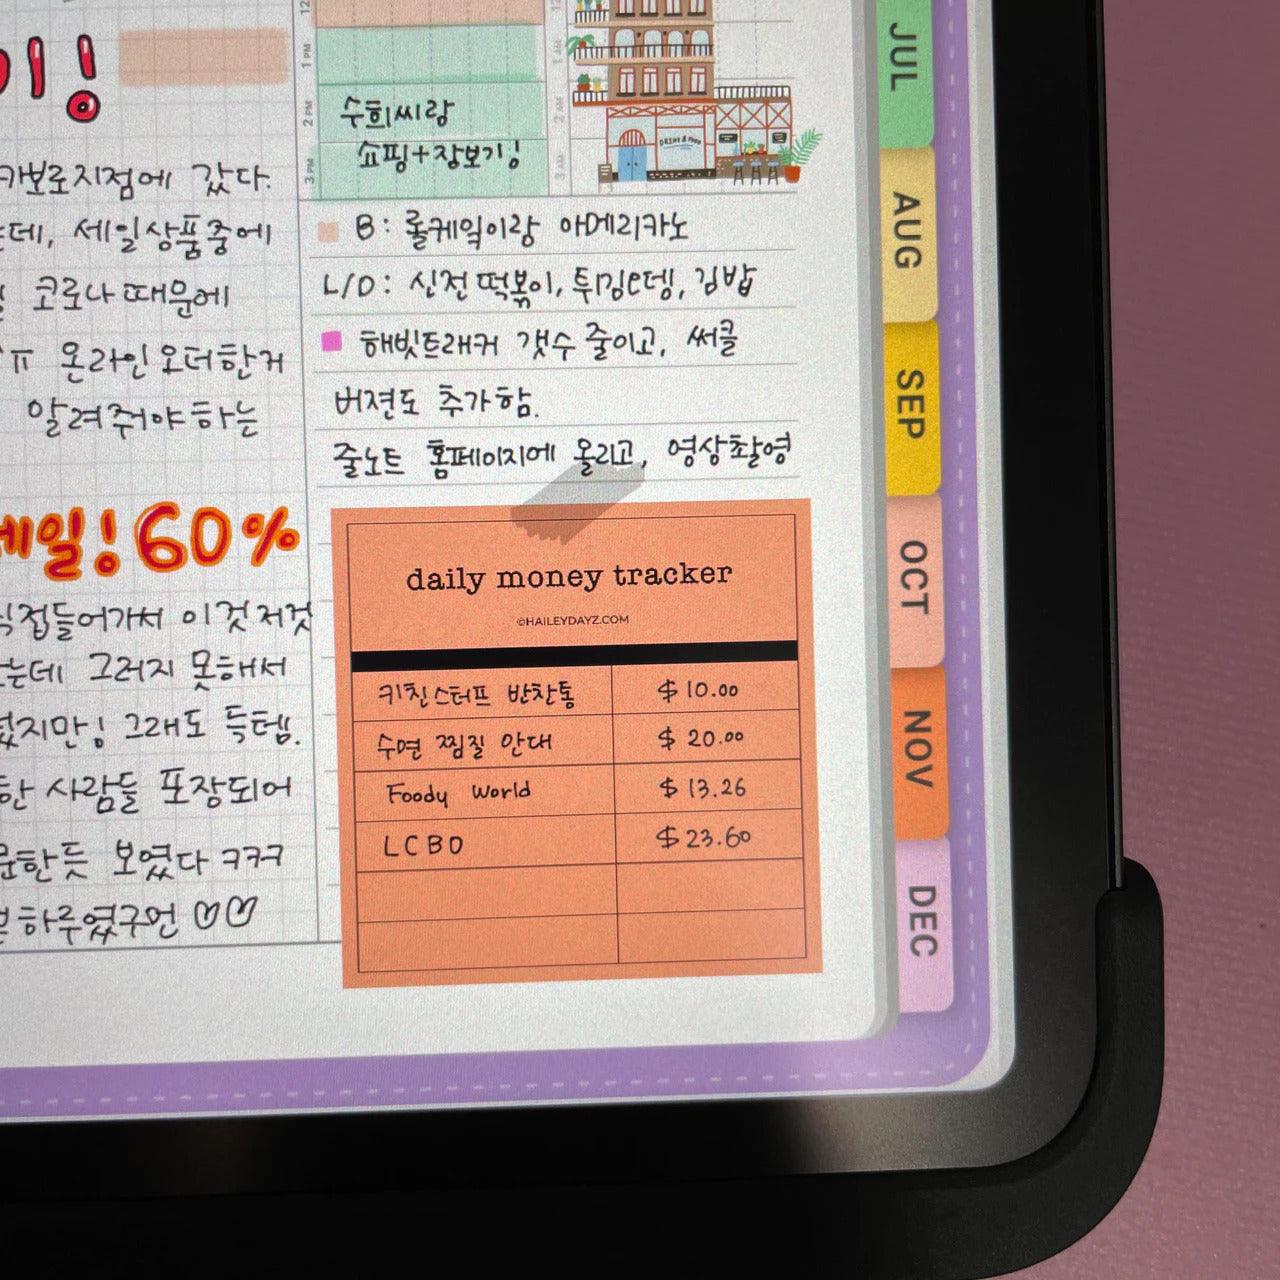 이!
카보로지점에 갔다.
는데, 세일상품중에
코로나때문에
ㅍ 온라인오더한거
알려줘야하는
세일! 60%
직접들어가서 이것저것
는데 그러지 못해서
지만! 그래도 득템.
한 사람들 포장되어
한듯 보였다 ㅋㅋㅋ
하루였구언 ♡♡
12
1 PM
2 PM
3 PM
수희씨랑
쇼핑+장보기!
1 AM
2 AM
3 AM
DRINK & FOOD
B: 롤케익이랑 아메리카노
L/D: 신전떡볶이, 투움e뎅, 김밥
해빗트래커 갯수 줄이고, 써클
버젼도 추가함.
줄노트 홈페이지에 올리고, 영상촬영
daily money tracker
©HAILEYDAYZ.COM
키친스터프 반찬통 $10.00
수면 찜질 안대 $20.00
Foody World $13.26
LCBO $23.60
JUL
AUG
SEP
OCT
NOV
DEC